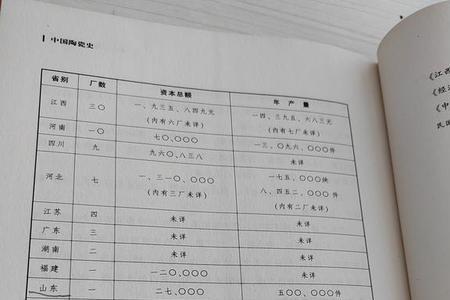 中国陶瓷史
省别 厂数 资本总额 年产量
江西 三〇 一、九三五、八四九元 一四、三九五、六八三元
(内有六厂未详) (内有七厂未详)
河南 一〇 七〇、〇〇〇 一三、〇九六、〇〇〇件
四川 九 九六〇、八三八 未详
河北 七 一、三一〇、〇〇〇 一七五、〇〇〇块
(内有三厂未详) 八、四五二、〇〇〇件
(内有二厂未详)
江苏 四 未详 未详
广东 三 未详 未详
湖南 二 未详 未详
福建 一 一二〇、〇〇〇 未详
山东 一 二七、〇〇〇 五〇〇、〇〇〇件
《江西
《经济
《中
民国